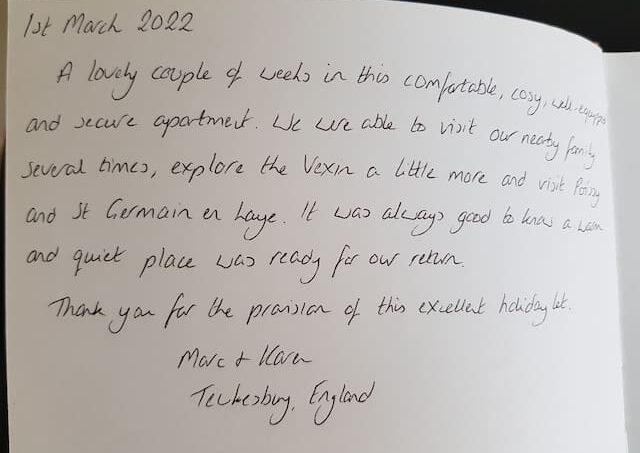 1st March 2022
A lovely couple of weeks in this comfortable, cosy, well-equipped
and secure apartment. We were able to visit our nearby family
several times, explore the Vexin a little more and visit Poissy
and St Germain en Laye. It was always good to know a warm
and quiet place was ready for our return.
Thank you for the provision of this excellent holiday let.
Marc + Karen
Tewkesbury, England